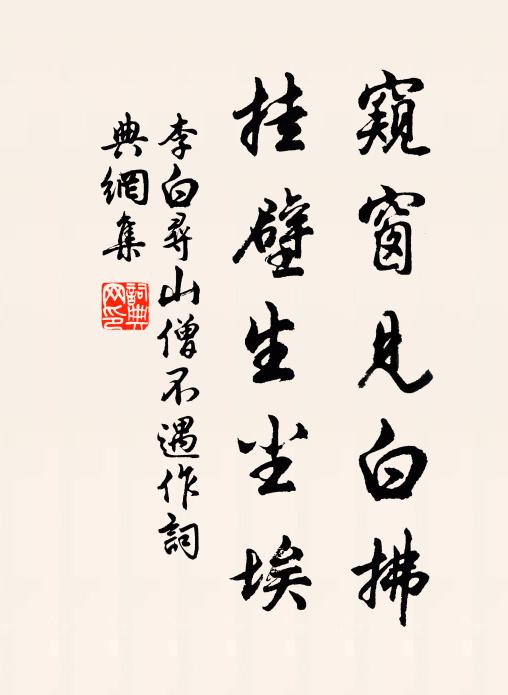 窺窗見白拂
挂壁生尘埃
李白尋山僧不遇作詞
典網集
詞典网印